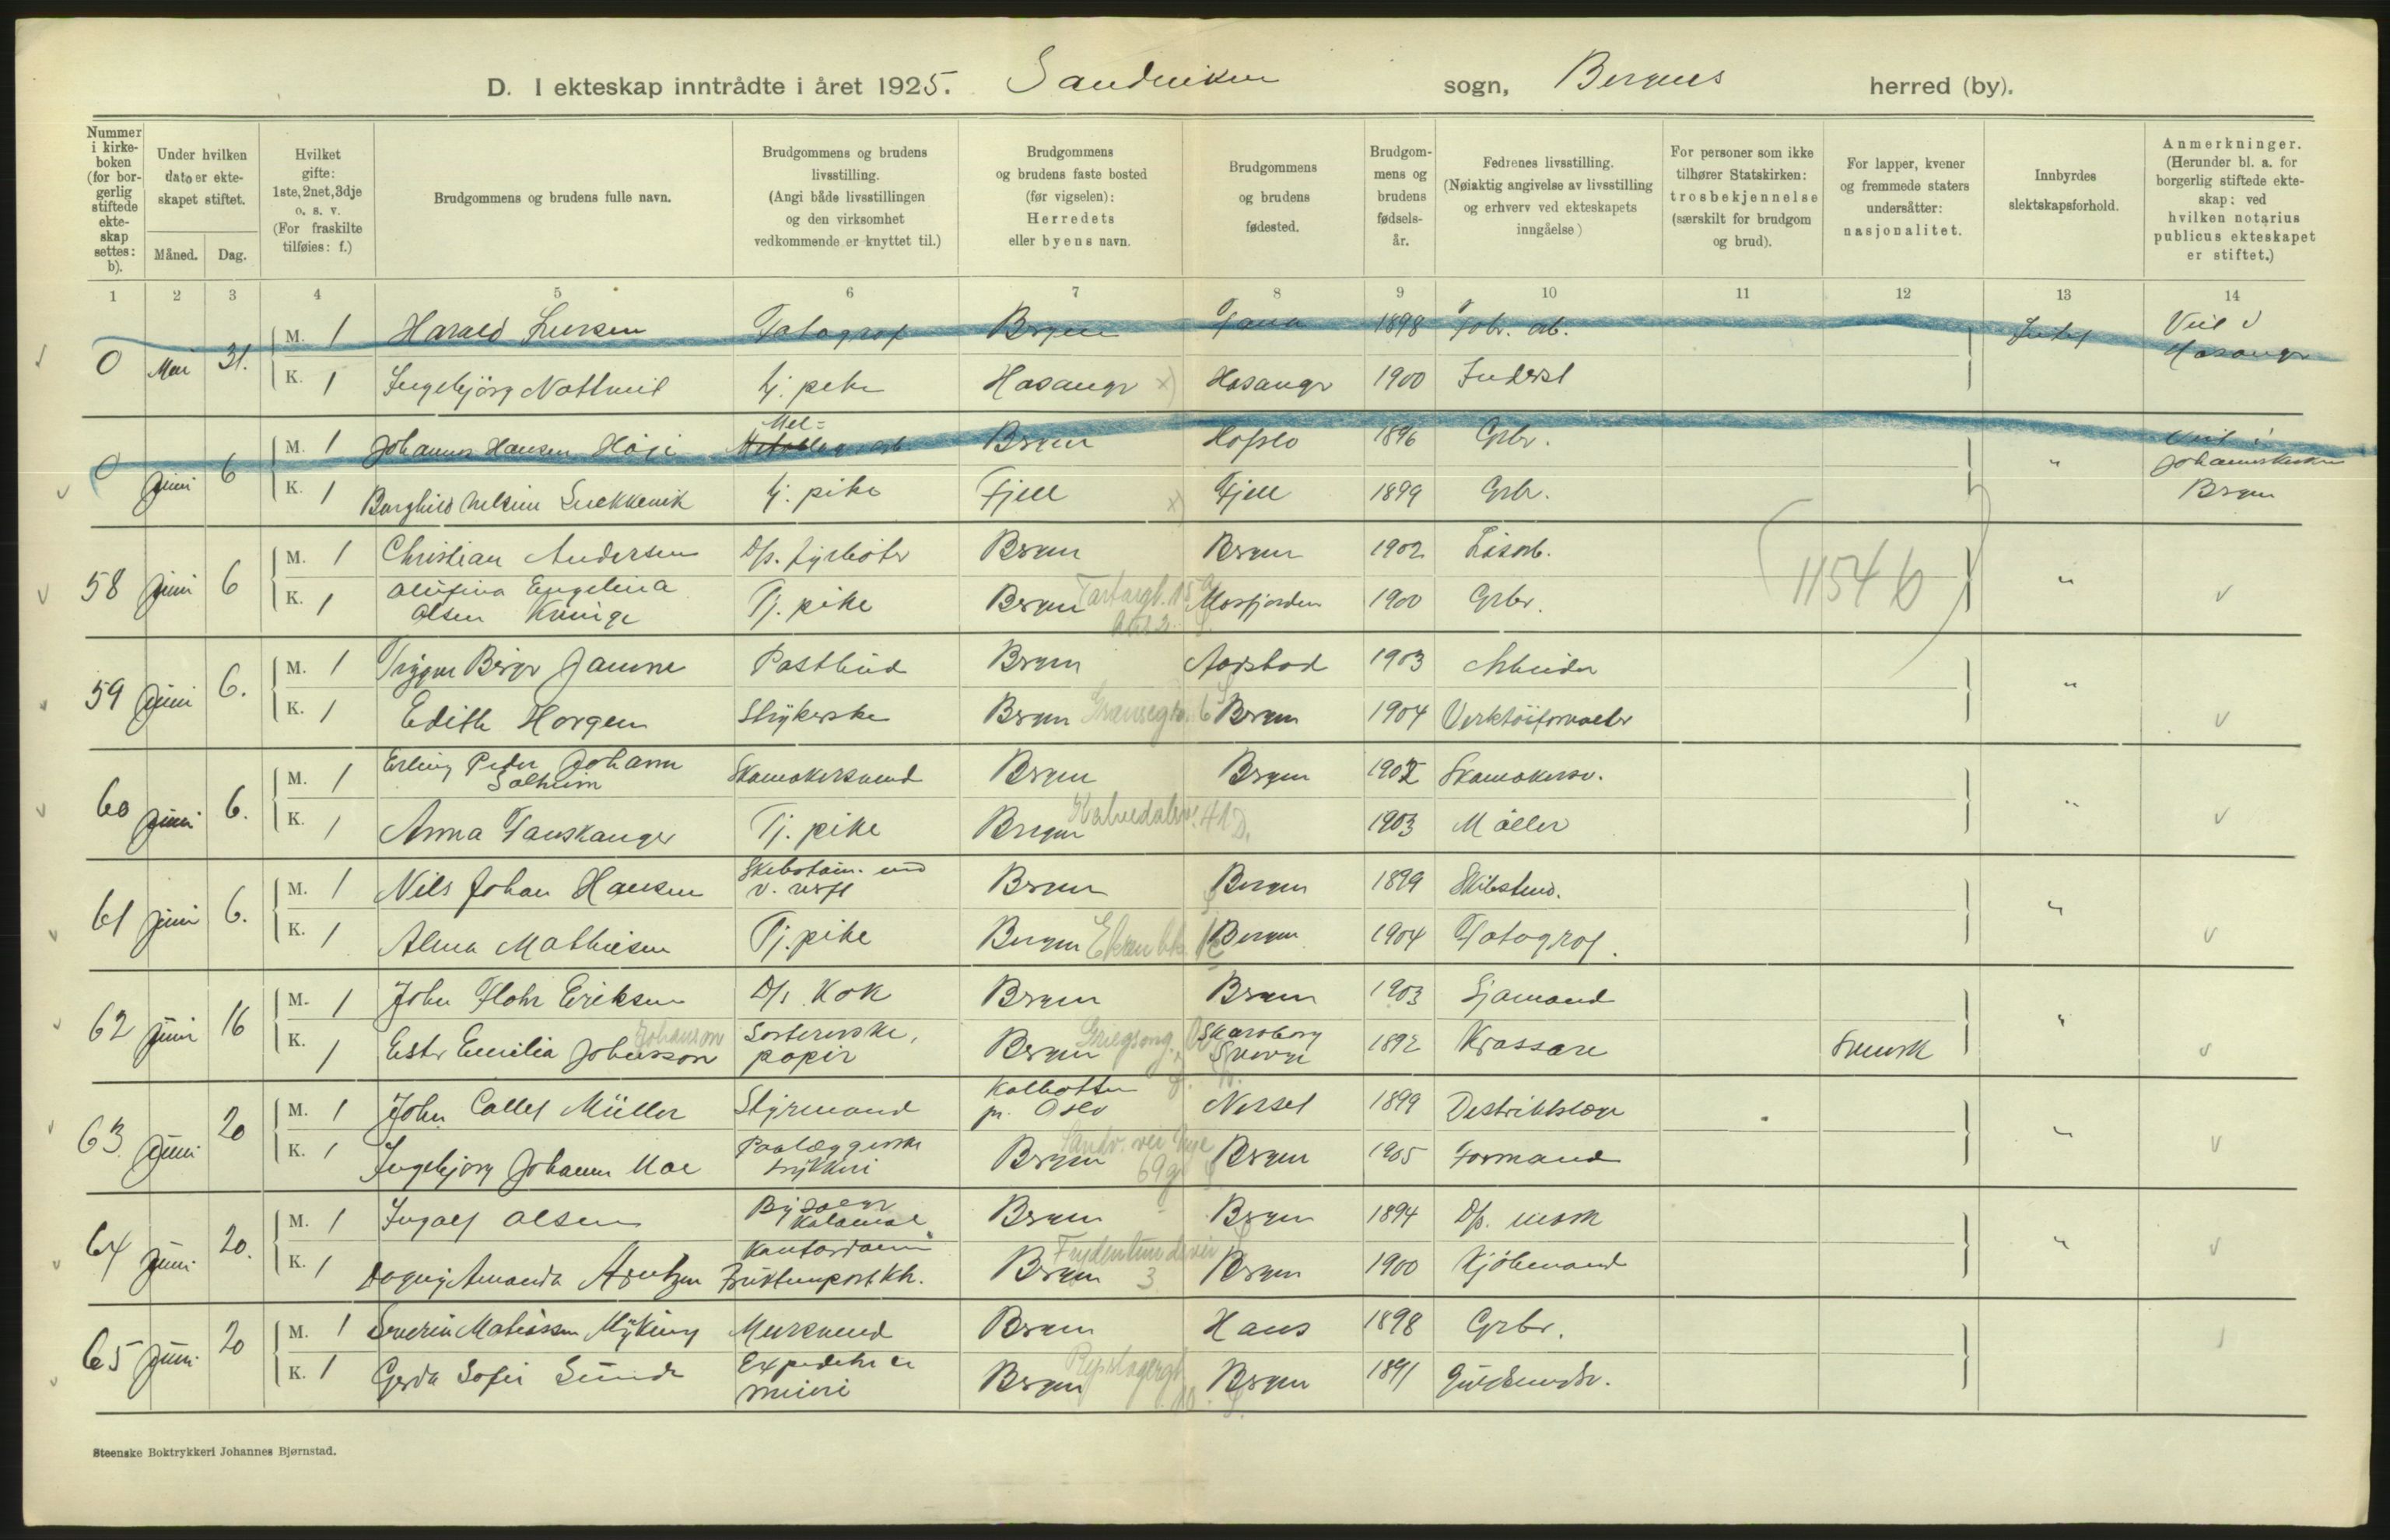 D. I ekteskap inntrådte i året 1925. Sandviken sogn, Bergens herred (by).
Nummer i kirkeboken (for borgerlig stiftede ekteskap settes: b).
Under hvilken dato er ekteskapet stiftet.
Måned. Dag.
Hvilket gifte: 1ste, 2net, 3dje o. s. v. (For fraskilte tilføies: f.)
Brudgommens og brudens fulle navn.
Brudgommens og brudens livsstilling. (Angi både livsstillingen og den virksomhet vedkommende er knyttet til.)
Brudgommens og brudens faste bosted (før vigselen): Herredets eller byens navn.
Brudgommens og brudens fødested.
Brudgommens og brudens fødselsår.
Fedrenes livsstilling. (Nøiaktig angivelse av livsstilling og erhverv ved ekteskapets inngåelse)
For personer som ikke tilhører Statskirken: trosbekjennelse (særskilt for brudgom og brud).
For lapper, kvener og fremmede staters undersåtter: nasjonalitet.
Innbyrdes slektskapsforhold.
Anmerkninger. (Herunder bl. a. for borgerlig stiftede ekteskap: ved hvilken notarius publicus ekteskapet er stiftet.)
1 2 3 4 5 6 7 8 9 10 11 12 13 14
0 Mai 31. M. 1 Harald Fotograf Bergen Fana 1898 Fabr. arb. Viel i
K. 1 Ingebjörg tj. pike Hosangr Hosangr 1900 Hosangr
0 Juni 6 M. 1 Johannes Hansen Bergen Hafslo 1896 Grbr. " Viel i
K. 1 Borghild tj. pike Fjell Fjell 1899 Grbr. Johanneskirken Bergen
58 Juni 6 M. 1 Christian Andersen D/s. fyrböter Bergen Bergen 1902 "
K. 1 Olufina Engelina Olsen Tj. pike Bergen Mosfjorden 1900 Grbr. 1154 b
59 Juni 6. M. 1 Trygve Birger Postbud Bergen Aarstad 1903 Arbeider "
K. 1 Edith Horgen Strykerske Bergen Bergen 1904
60 Juni 6. M. 1 Erling Peder Johan Solheim Skomakersvend Bergen Bergen 1902 Skomakersv. "
K. 1 Anna Tauskanger Tj. pike Bergen Kalvedalsv. 41 D. 1903 Möller
61 Juni 6. M. 1 Nils Johan Hansen v. verft Bergen Bergen 1899 "
K. 1 Alma Mathiesen Tj. pike Bergen Bergen 1904 Fotograf.
62 Juni 16 M. 1 John Flohr Eriksen D/s Kok Bergen Bergen 1903 Sjömand "
K. 1 Ester Emilia Johansson Johanson Sortererske, papir Bergen Skaraborg Sverge 1892 Krassare Svensk
63. Juni 20 M. 1 John Collet Müller Styrmand Kolbotten pr. Oslo Nesset 1899 Distriktslæge "
K. 1 Ingebjorg Johanne Moe Paalæggerske trykkeri Bergen Sandv. vei 69 g Bergen 1905 Formand
64 Juni 20. M. 1 Ingolf Olsen Bergen Bergen 1894 D/s. mask "
K. 1 Dagny Amanda Arntzen Kontordame Bergen Frydenlundsvei 3 Bergen 1900 Kjöbmand
65 Juni 20 M. 1 Severin Matiassen Myking Mursvend Bergen Haus 1898 Grbr.
K. 1 Gerda Sofie Sunde Expeditr. meieri Bergen Repslagergt. Bergen 1891
Steenske Boktrykkeri Johannes Bjørnstad.